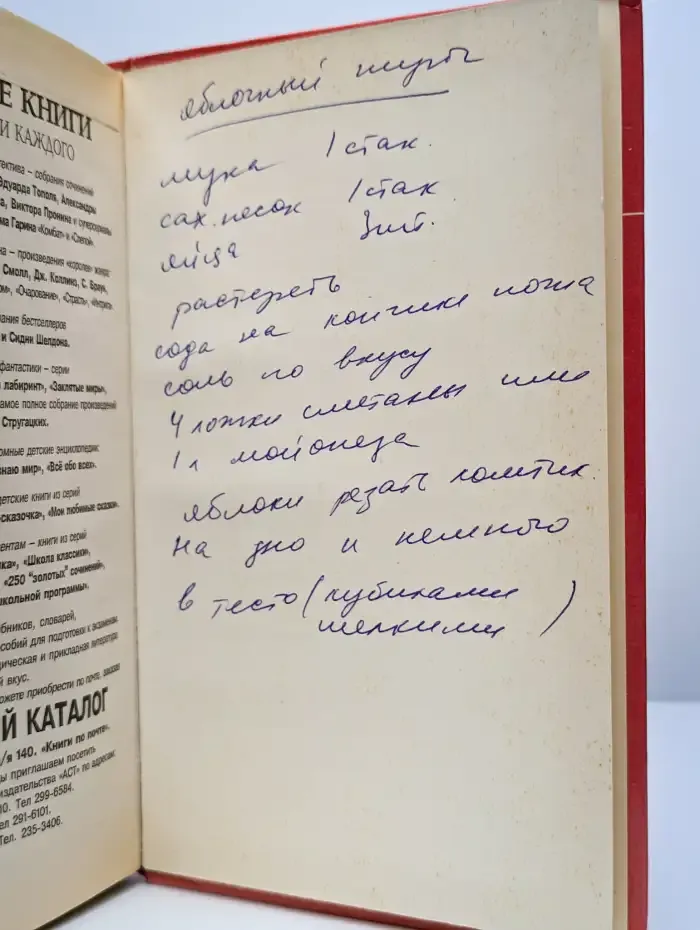 Е КНИГИ
И КАЖДОГО
тектива – собрания сочинений
Эдуарда Тополя, Александры
а, Виктора Пронина и суперсериалы
ма Гарина «Комбат» и «Слепой».
на – произведения «королев» жанра:
Смолл, Дж. Коллинз, С. Браун,
ом», «Очарование», «Страсть», «Интрига».
рания бестселлеров
и Сидни Шелдона.
фантастики – серии
лабиринт», «Заклятые миры»,
самое полное собрание произведений
Стругацких.
ломные детские энциклопедии:
знаю мир», «Всё обо всех».
детские книги из серий
«сказочка», «Мои любимые сказки».
ентам – книги из серий
ка», «Школа классики»,
«250 "золотых" сочинений»,
школьной программы».
бников, словарей,
особий для подготовки к экзаменам.
дическая и прикладная литература
й вкус.
ожете приобрести по почте, заказав
Й КАТАЛОГ
/я 140. «Книги по почте».
ы приглашаем посетить
издательства «АСТ» по адресам:
00. Тел 299-6584.
ел 291-6101.
Тел. 235-3406.
яблочный пирог
мука 1 стак.
сах. песок 1 стак
яйца 3 шт.
растереть
сода на кончике ножа
соль по вкусу
4 ложки сметаны или
1 л майонеза
яблоки резать ломтик.
На дно и немного
в тесто (кубиками
мелкими)